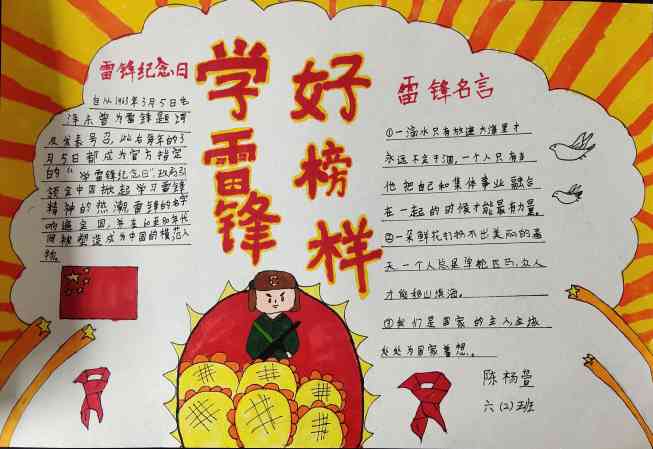 学雷锋
好榜样
雷锋纪念日
自从1963年3月5日毛
泽东曾为雷锋题词
及发表号召,此后每年的3
月5日都成为官方指定
的“学雷锋纪念日”,
全中国掀起学习雷锋
精神的热潮,雷锋的名字
响遍全国,并在60至80年代
被塑造成为中国的模范人
物。
雷锋名言
①一滴水只有放进大海里才
永远不会干涸,一个人只有当
他把自己和集体事业融合
在一起的时候才能最有力量。
②一朵鲜花打扮不出美丽的春
天,一个人总是单枪匹马,众人
才能移山填海。
③我们是国家的主人,应该
处处为国家着想。
陈杨萱
六(2)班